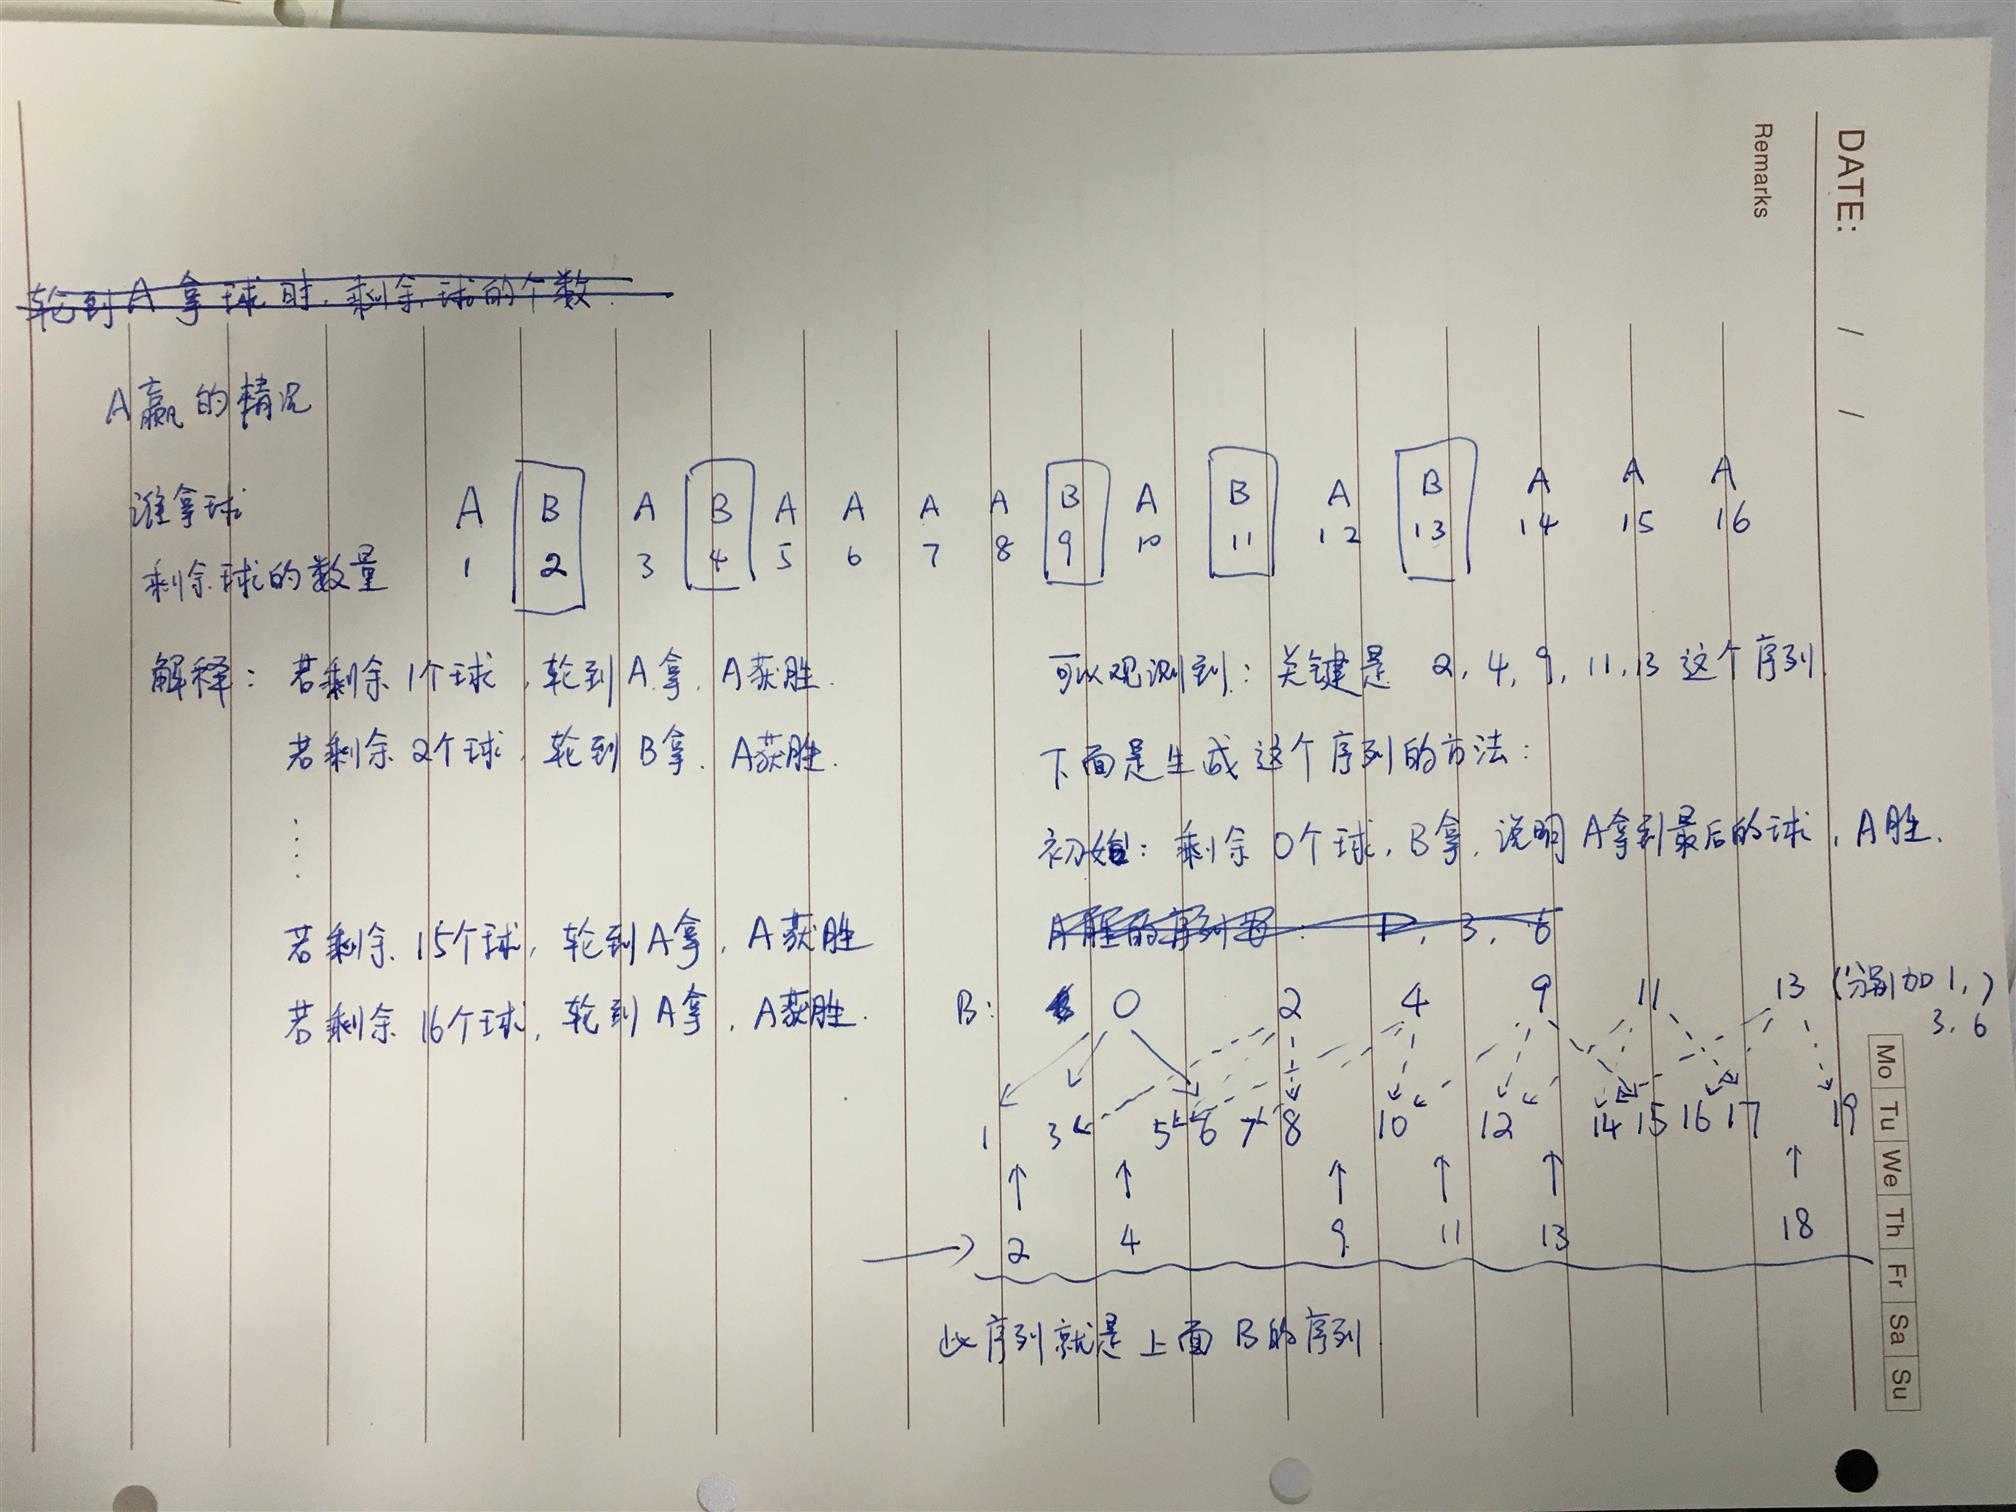 DATE: / /
Remarks
轮到A拿球时,剩余球的个数.
A赢的情况
谁拿球 A B A B A A A A B A B A B A A A
剩余球的数量 1 2 3 4 5 6 7 8 9 10 11 12 13 14 15 16
解释: 若剩余1个球,轮到A拿,A获胜.
若剩余2个球,轮到B拿,A获胜.
⋮
若剩余15个球,轮到A拿,A获胜
若剩余16个球,轮到A拿,A获胜.
可以观测到: 关键是 2, 4, 9, 11, 13 这个序列
下面是生成这个序列的方法:
初始: 剩余0个球,B拿,说明A拿到最后的球,A胜.
3, 6
B: 0 2 4 9 11 13 (分别加1, 3, 6)
1 3 5 6 7 8 10 12 14 15 16 17 19
2 4 9 11 13 18
此序列就是上面B的序列
Mo Tu We Th Fr Sa Su